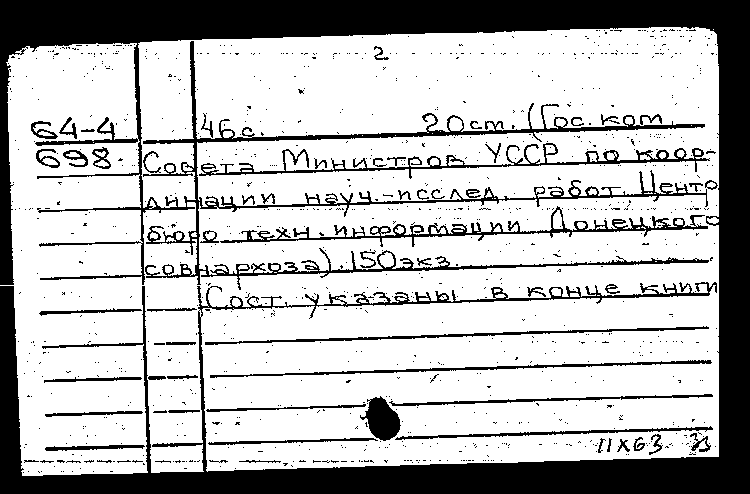 2
64-4 46с. 20см. (Гос. ком.
698. Совета Министров УССР по коор-
динации науч.-исслед. работ. Центр.
бюро техн. информации Донецкого
совнархоза). 150экз.
Сост. указаны в конце книги
11X63